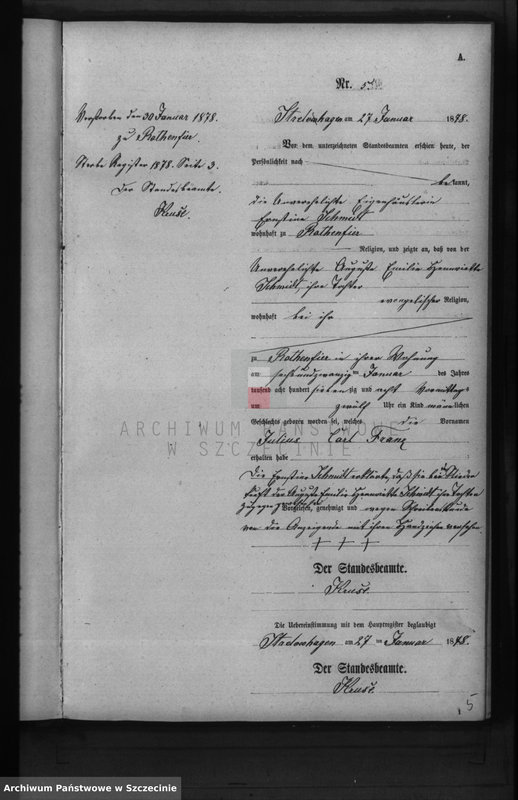 A.
Nr. 5.
Verstorben den 30 Januar 1878.
zu Rothenfier.
Sterbe Register 1878. Seite 3.
Der Standesbeamte.
Kruse.
am 27 Januar 1878.
Vor dem unterzeichneten Standesbeamten erschien heute, der
Persönlichkeit nach
bekannt,
die unverehelichte Eigenthümerin
Ernstine Schmidt
wohnhaft zu Rothenfier
Religion, und zeigte an, daß von der
Unverehelichte Auguste Emilie Hennriette
Schmidt, ihre Tochter
evangelischer Religion,
wohnhaft bei ihr
zu Rothenfier in ihrer Wohnung
am sechsundzwanzigten Januar des Jahres
tausend acht hundert siebenzig und acht Vormittags
um zwölf Uhr ein Kind männlichen
Geschlechts geboren worden sei, welches die Vornamen
Julius Carl Franz
erhalten habe
Die Ernstine Schmidt erklärte, daß sie bei Nieder
kunft der Auguste Emilie Hennriette Schmidt ihre Tochter
zugegen
Vorgelesen, genehmigt und wegen Schreibensunkunde
von die Anzeigende mit ihren Handzeichen versehen.
+ + +
Der Standesbeamte.
Kruse.
Die Uebereinstimmung mit dem Hauptregister beglaubigt
am 27 ten Januar 1878.
Der Standesbeamte.
Kruse
5
ARCHIWUM PAŃSTWOWE
W SZCZECINIE
Archiwum Państwowe w Szczecinie